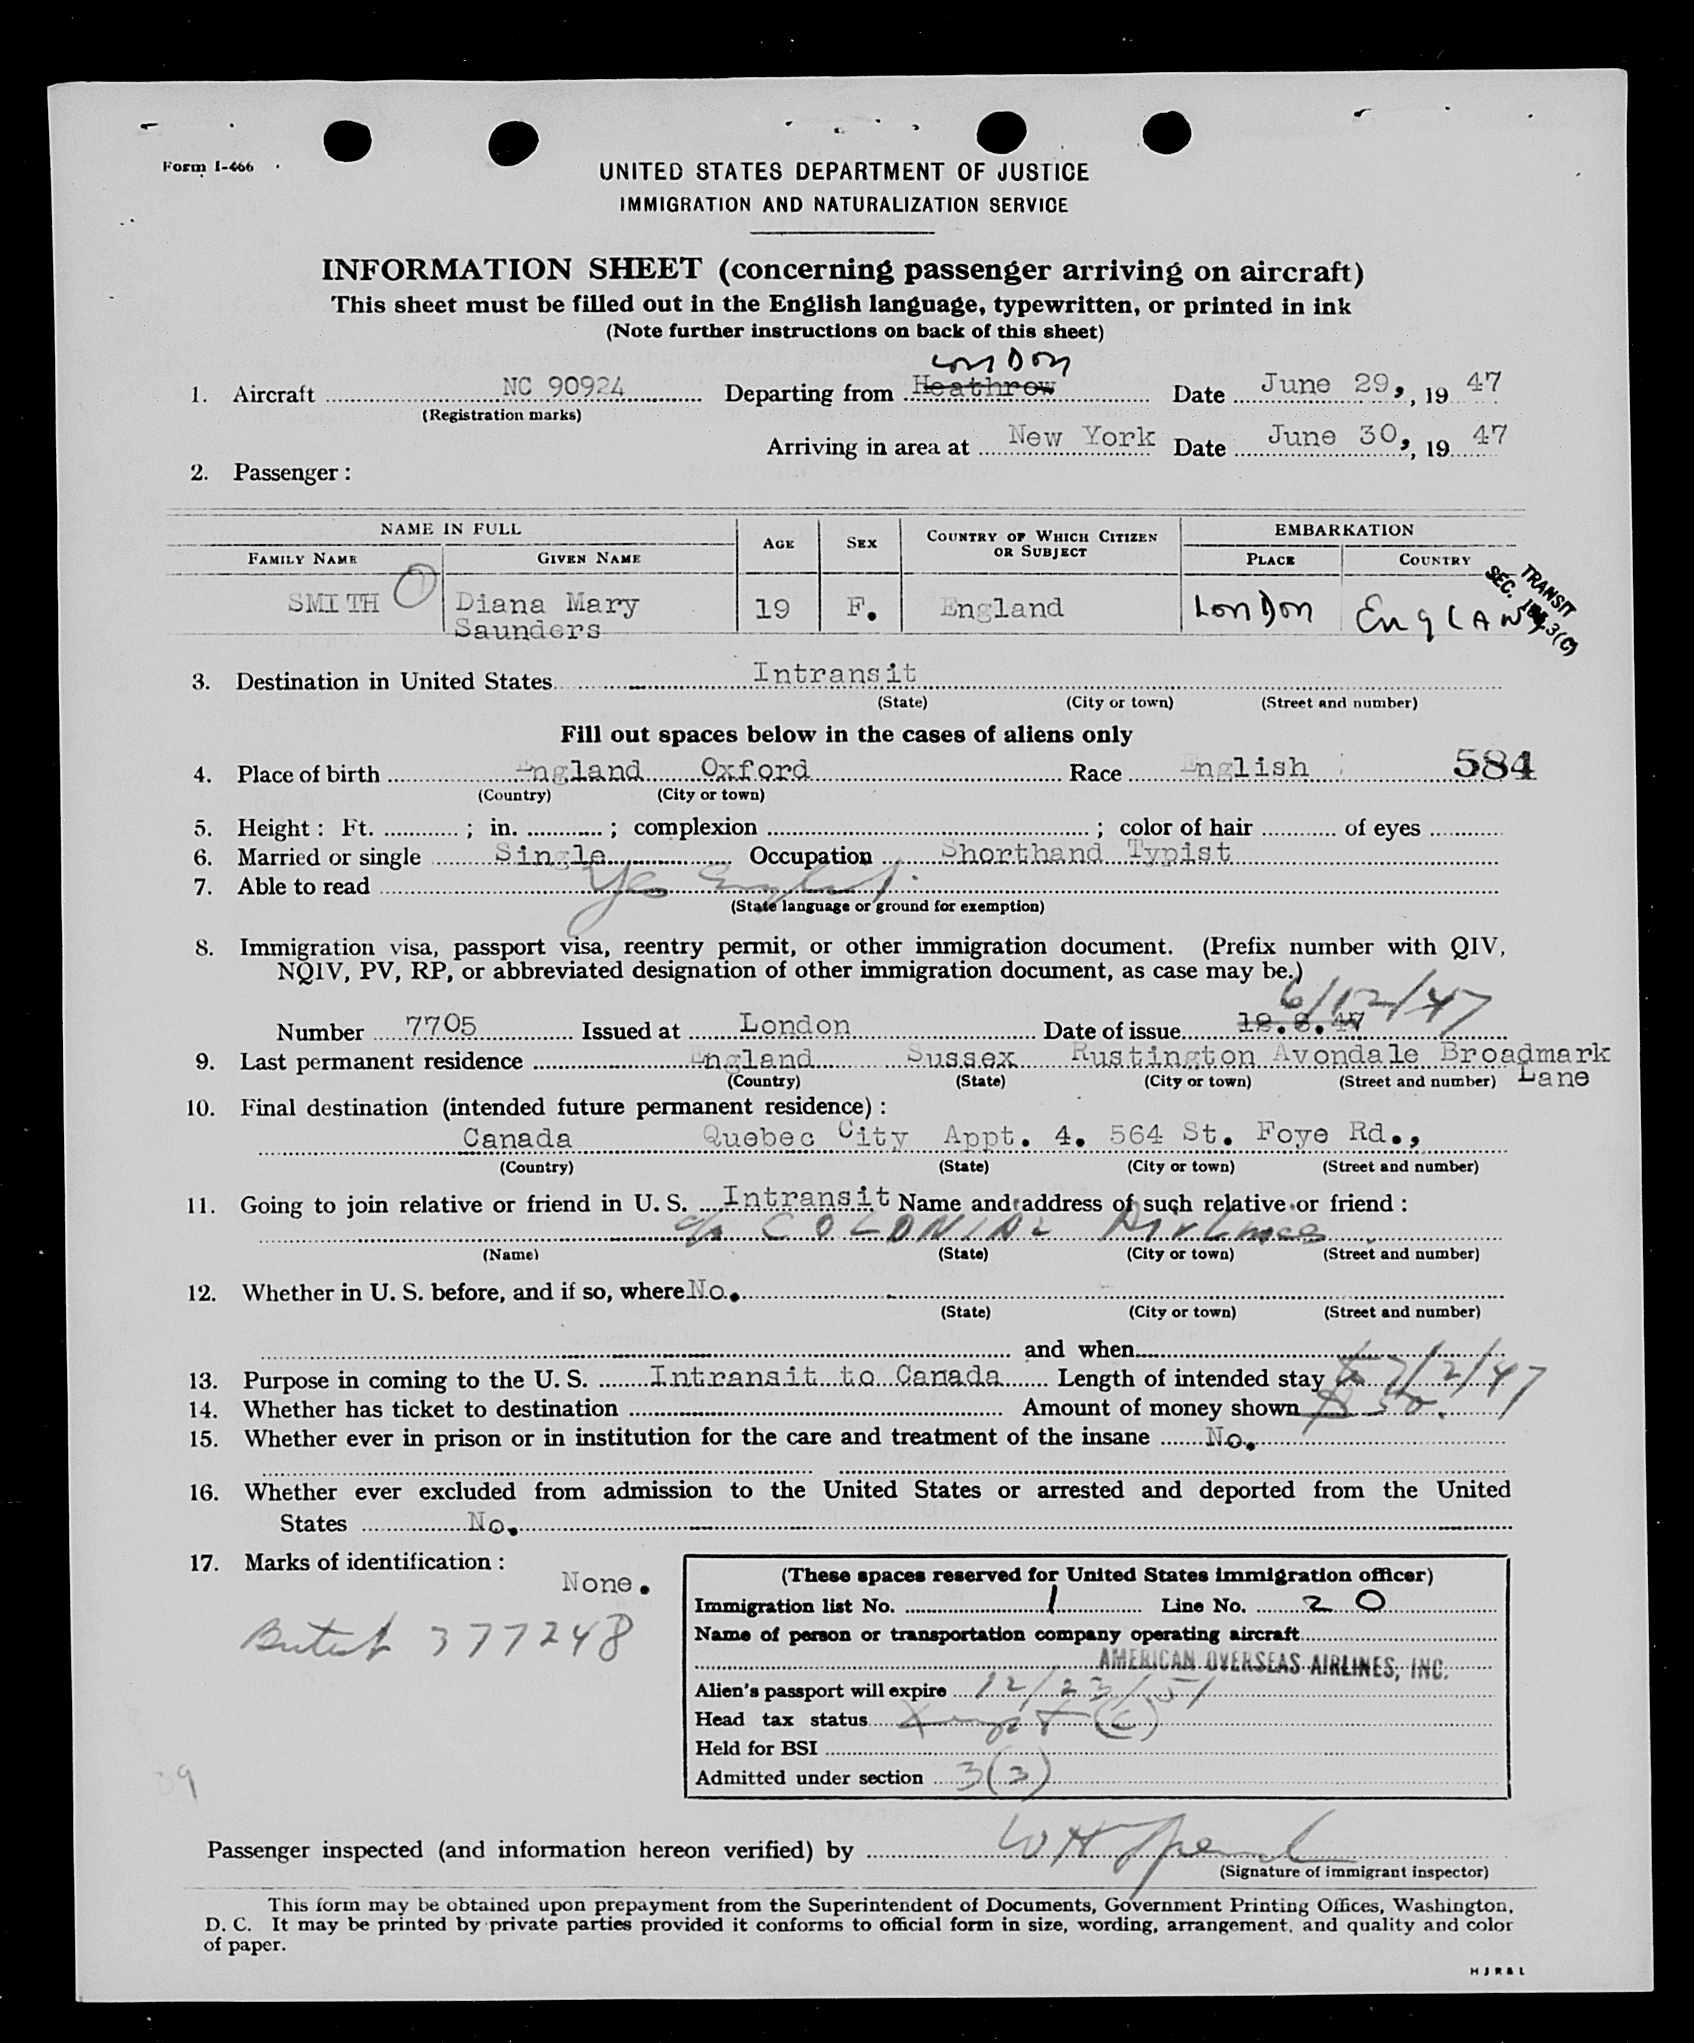 Form I-466
UNITED STATES DEPARTMENT OF JUSTICE
IMMIGRATION AND NATURALIZATION SERVICE
INFORMATION SHEET (concerning passenger arriving on aircraft)
This sheet must be filled out in the English language, typewritten, or printed in ink
(Note further instructions on back of this sheet)
LonDon
1. Aircraft NC 90924 Departing from Heathrow Date June 29, , 19 47
(Registration marks)
Arriving in area at New York Date June 30, , 19 47
2. Passenger :
NAME IN FULL AGE SEX COUNTRY OF WHICH CITIZEN OR SUBJECT EMBARKATION
FAMILY NAME GIVEN NAME PLACE COUNTRY
TRANSIT
SEC. 3(C)
SMITH Diana Mary 19 F. England LonDon EnglAND
Saunders
3. Destination in United States Intransit
(State) (City or town) (Street and number)
Fill out spaces below in the cases of aliens only
4. Place of birth England Oxford Race English 584
(Country) (City or town)
5. Height : Ft. ; in. ; complexion ; color of hair of eyes
6. Married or single Single Occupation Shorthand Typist
7. Able to read Yes English
(State language or ground for exemption)
8. Immigration visa, passport visa, reentry permit, or other immigration document. (Prefix number with QIV,
NQIV, PV, RP, or abbreviated designation of other immigration document, as case may be.)
6/12/47
Number 7705 Issued at London Date of issue
9. Last permanent residence England Sussex Rustington Avondale Broadmark
(Country) (State) (City or town) (Street and number) Lane
10. Final destination (intended future permanent residence) :
Canada Quebec City Appt. 4. 564 St. Foye Rd.,
(Country) (State) (City or town) (Street and number)
11. Going to join relative or friend in U. S. Intransit Name and address of such relative or friend :
c/o COLONIAL AirLines
(Name) (State) (City or town) (Street and number)
12. Whether in U. S. before, and if so, where No.
(State) (City or town) (Street and number)
and when
13. Purpose in coming to the U. S. Intransit to Canada Length of intended stay to 7/2/47
14. Whether has ticket to destination Amount of money shown $ 50.
15. Whether ever in prison or in institution for the care and treatment of the insane No.
16. Whether ever excluded from admission to the United States or arrested and deported from the United
States No.
17. Marks of identification :
None.
British 377248
(These spaces reserved for United States immigration officer)
Immigration list No. 1 Line No. 20
Name of person or transportation company operating aircraft
AMERICAN OVERSEAS AIRLINES, INC.
Alien's passport will expire 12/23/51
Head tax status Xempt (6)
Held for BSI
Admitted under section 3(3)
Passenger inspected (and information hereon verified) by
(Signature of immigrant inspector)
This form may be obtained upon prepayment from the Superintendent of Documents, Government Printing Offices, Washington,
D. C. It may be printed by private parties provided it conforms to official form in size, wording, arrangement, and quality and color
of paper.
H J R & L